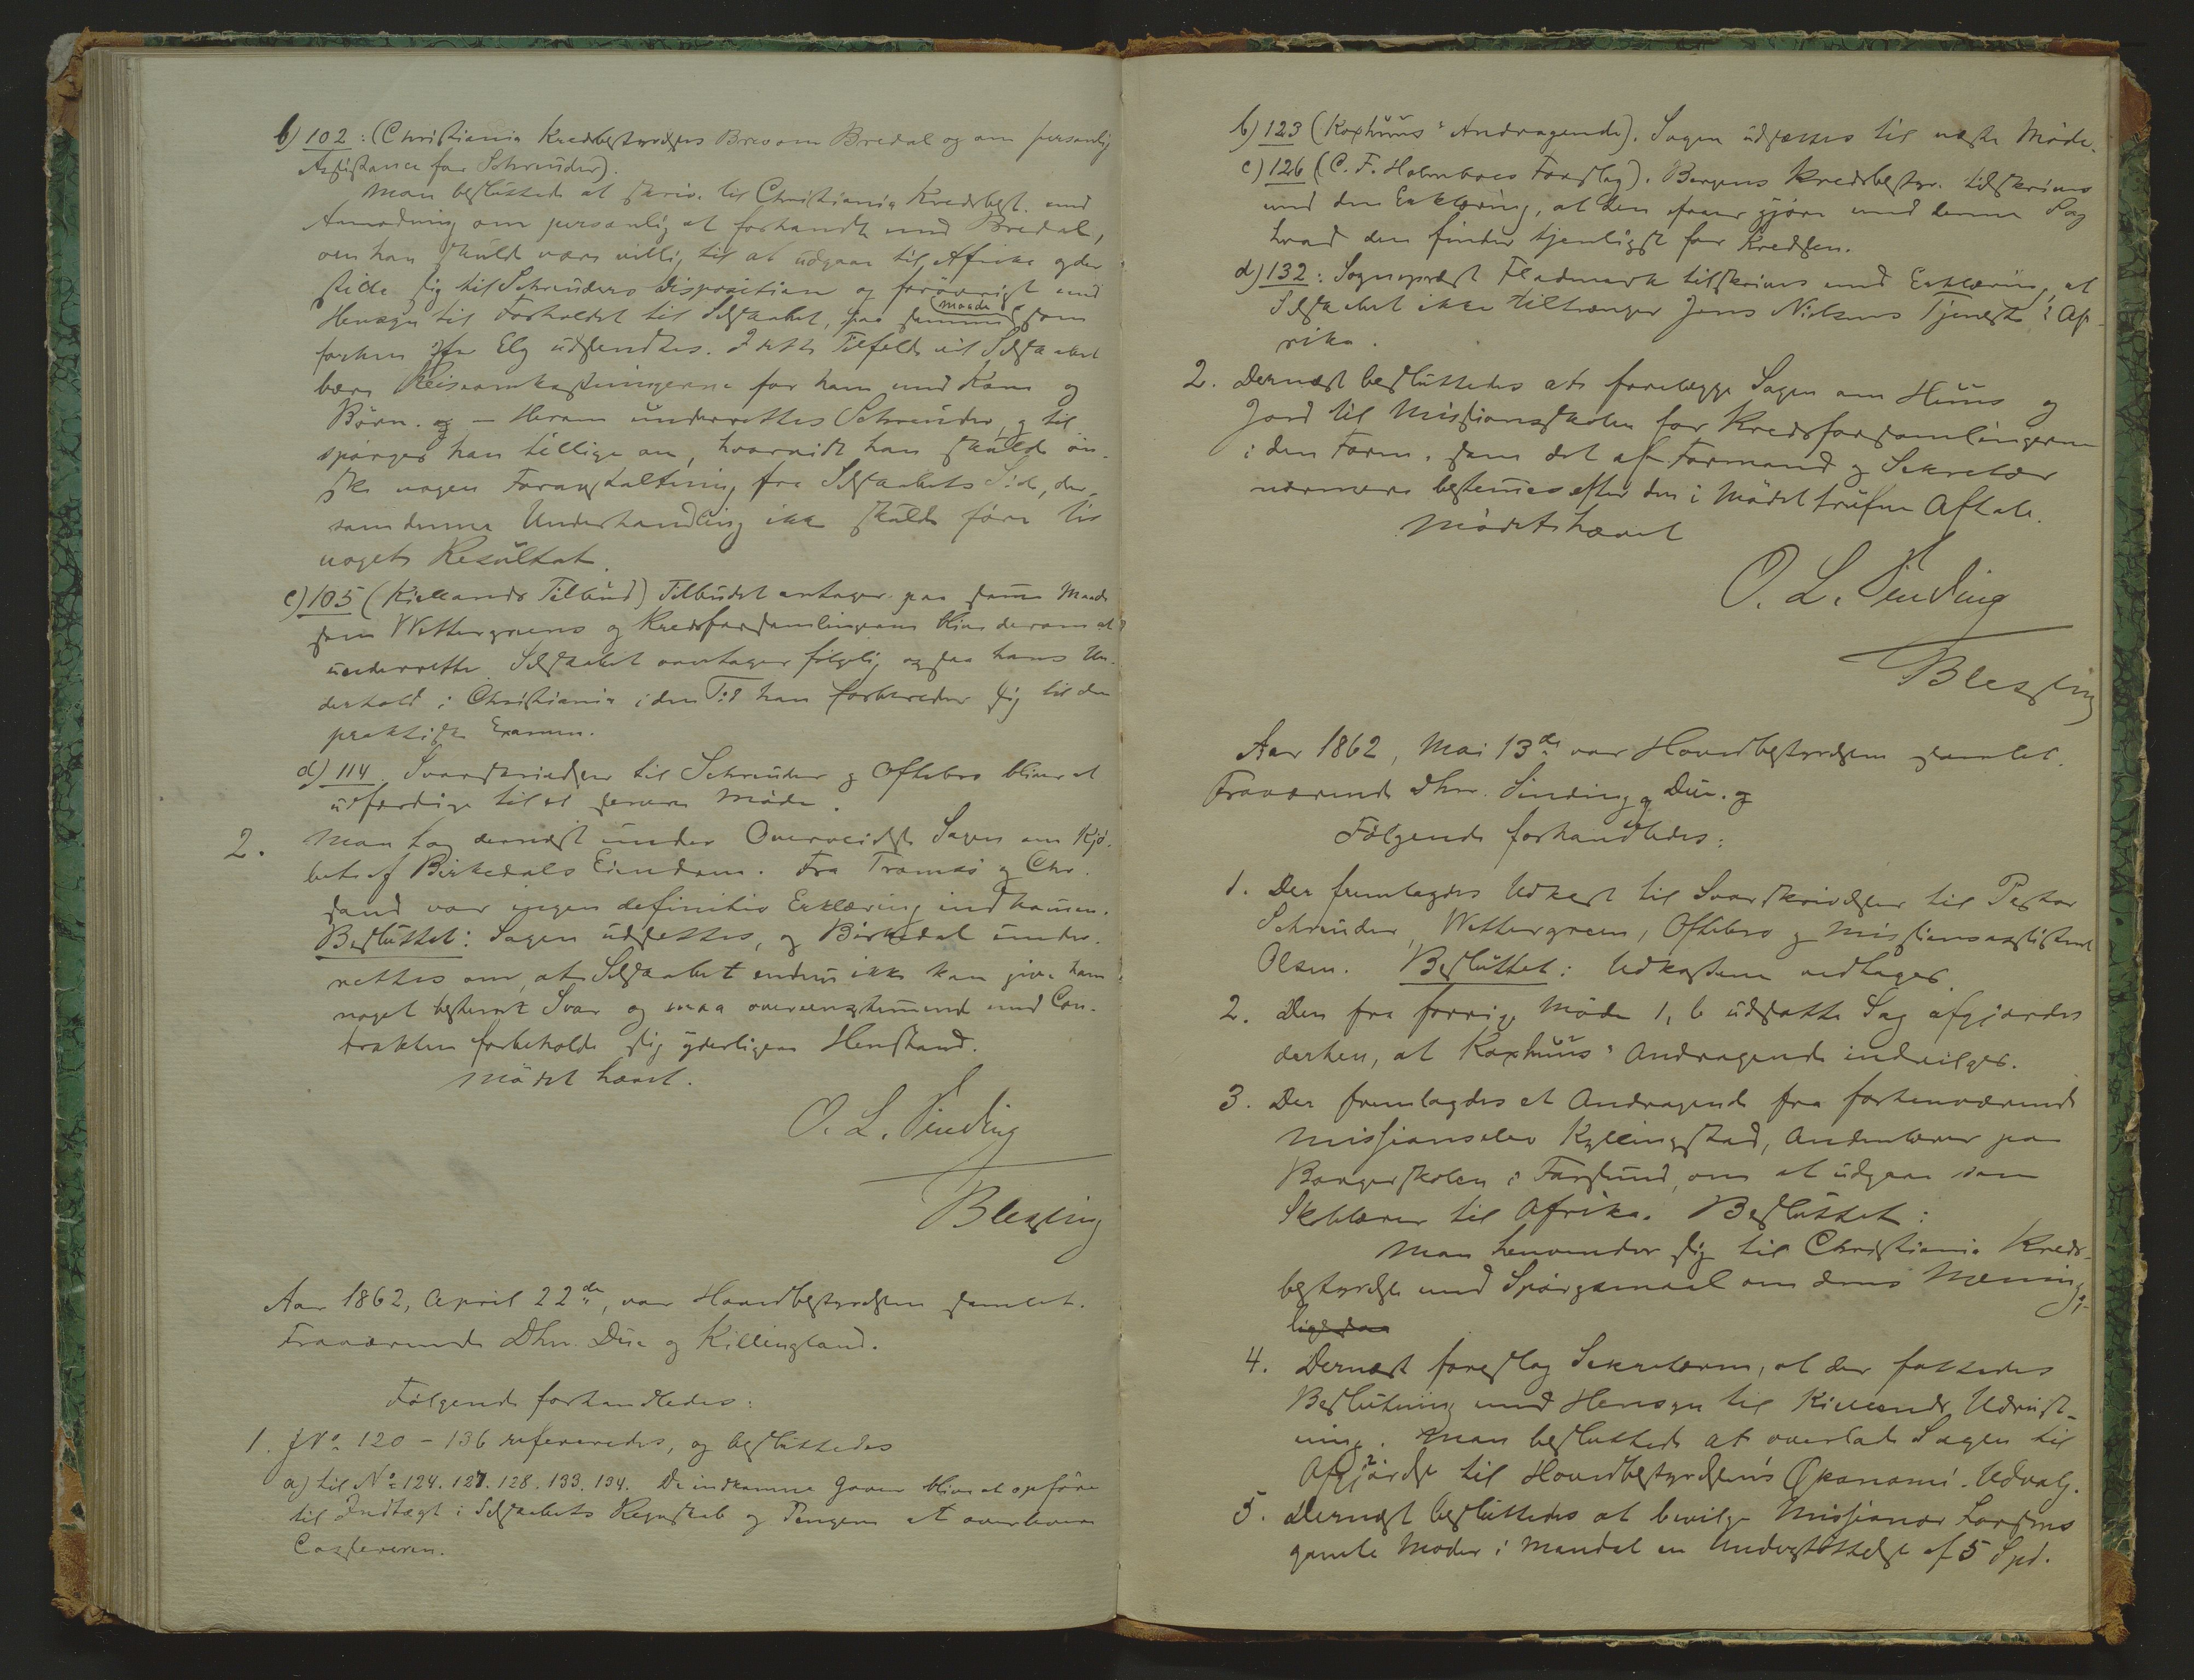 b) 102: (Christiania Kredsbestyrelses Brev om Bredal og om personlig
Assistance for Schreuder).
Man besluttede at skrive til Christiania Kredsbest. med
Anmodning om personlig at forhandle med Bredal,
om han skulde være villig til at udgaa til Afrika og der
stille sig til Schreuders Disposition og forøvrigt med
Hensyn til Forholdet til Selskabet, paa samme Maade som
forhen Elg udsendtes. I dette Tilfælde vil Selskabet
bære Reiseomkostningerne for ham med Kone og
Børn. og – Herom underrettes Schreuder, og til
spørges han tillige om, hvorvidt han skulde øn-
ske nogen Foranstaltning fra Selskabets Side, der-
som denne Underhandling ikke skulde føre til
noget Resultat.
c) 105 (Kiellands Tilbud) Tilbudet antages paa samme Maade
som Wettergreens og Kredsforsamlingerne blive derom at
underrette. Selskabet overtager følgelig ogsaa hans Un-
derhold i Christiania i den Tid han forbereder sig til den
praktiske Examen.
d) 114. Svarskrivelser til Schreuder og Oftebro bliver at
udfærdige til et senere Møde.
2. Man tog dernæst under Overveielse Sagen om Kjø-
bet af Birkedals Eiendom. Fra Tromsø og Chr.
sand var ingen definitiv Erklæring indkommen.
Besluttet: Sagen udsættes, og Birkedal under-
rettes om, at Selskabet endnu ikke kan give ham
noget bestemt Svar og maa overeensstemmende med Con-
trakten forbeholde sig yderligere Henstand.
Mødet hævet.
O. L. Sinding
Blessing
Aar 1862, April 22de, var Hovedbestyrelsen samlet.
Fraværende Dhrr. Due og Killingland.
Følgende forhandledes:
1. JNo 120 – 136 refereredes, og besluttedes
a) til No 124. 127. 128. 133. 134. De indkomne Gaver bliver at opføre
til Indtægt i Selskabets Regnskab og Pengene at overlevere
Cassereren.
b) 123 (Koxhuus' Andragende). Sagen udsættes til næste Møde.
c) 126 (C. F. Holmboes Forslag). Bergens Kredsbestyr. tilskrives
med den Erklæring, at den faaer gjøre med denne Sag
hvad den finder tjenligst for Kredsen.
d) 132: Sognepræst Fladmark tilskrives med Erklæring, at
Selskabet ikke tiltrænger Jens Nielsens Tjeneste i Af-
rika.
2. Dernæst besluttedes at forelægge Sagen om Huus og
Jord til Missionsskolen for Kredsforsamlingerne
i den Form, som det af Formand og Sekretær
nærmere bestemmes efter den i Mødet trufne Aftale.
Mødet hævet
O. L. Sinding
Blessing
Aar 1862, Mai 13de var Hovedbestyrelsen samlet.
Fraværende Dhrr. Sinding og Due. og
Følgende forhandledes:
1. Der fremlagdes Udkast til Svarskrivelser til Pastor
Schreuder, Wettergreen, Oftebro og Missionsassistent
Olsen. Besluttet: Udkastene vedtages.
2. Den fra forrige Møde 1, b udsatte Sag afgjordes
derhen, at Koxhuus' Andragende indvilges.
3. Der fremlagdes et Andragende fra forhenværende
Missionselev Kyllingstad, Andenlærer paa
Borgerskolen i Farsund, om at udgaa som
Skolelærer til Afrika. Besluttet:
Man henvender sig til Christiania Kreds-
bestyrelse med Spørgsmaal om dens Mening,
ligesaa
4. Dernæst foreslog Sekretæren, at der fattedes
Beslutning med Hensyn til Kiellands Udrust-
ning. Man besluttede at overlade Sagen til
Afgjørelse til Hovedbestyrelsens Økonomi-Udvalg.
5. Dernæst besluttedes at bevilge Missionær Larsens
gamle Moder i Mandal en Understøttelse af 5 Spd.